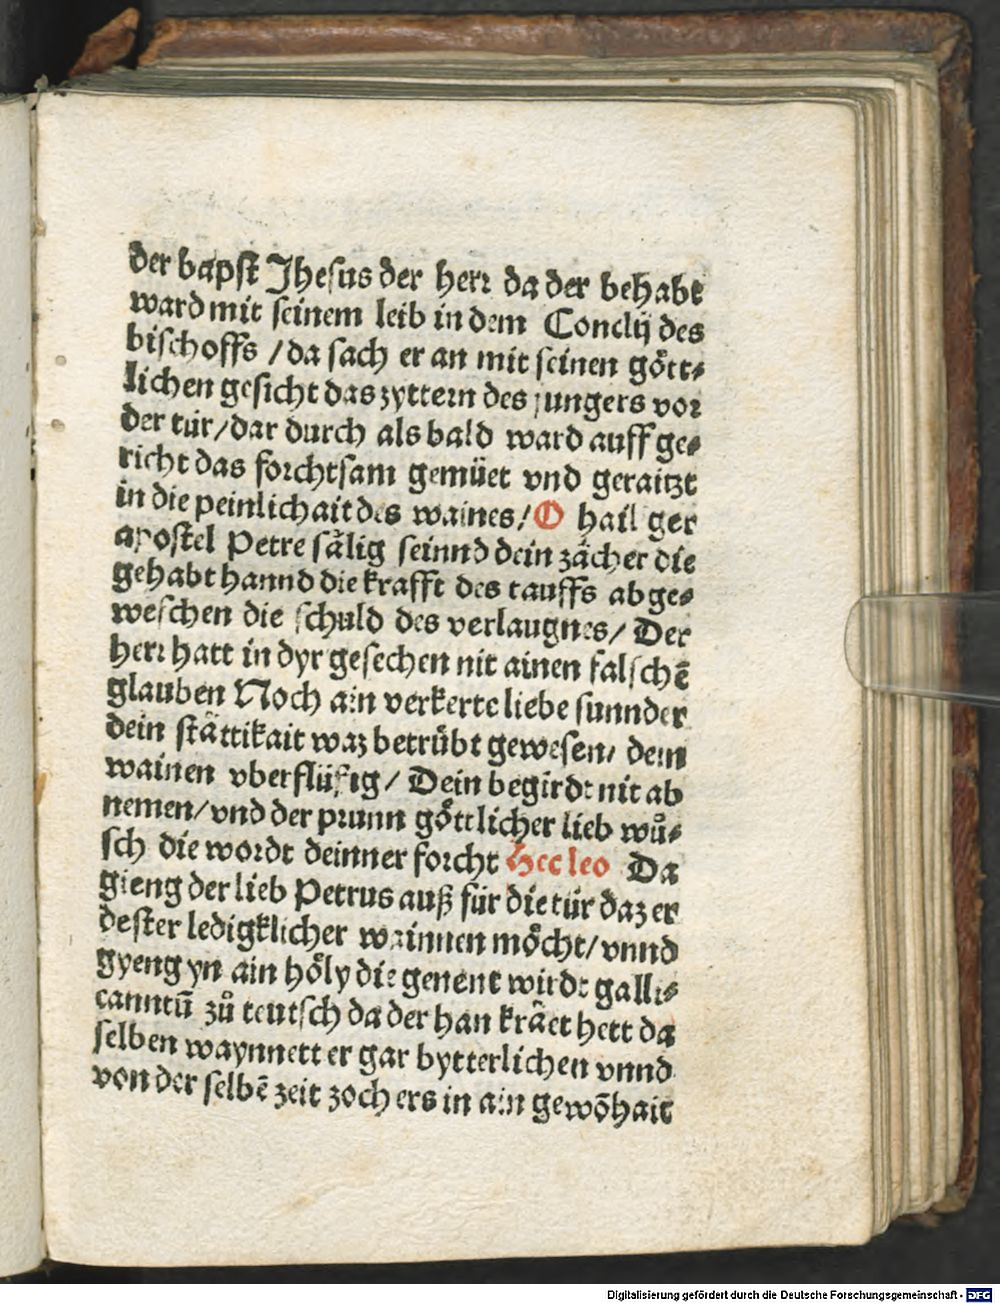 der bapst Jhesus der herr da der behabt
ward mit seinem leib in dem Conclij des
bischoffs / da sach er an mit seinen gött⸗
lichen gesicht das zyttern des jungers vor
der tür / dar durch als bald ward auff ge⸗
richt das forchtsam gemüet vnd geraitzt
in die peinlichait des waines / O hail ger
apostel Petre sälig seinnd dein zächer die
gehabt hannd die krafft des tauffs abge⸗
weschen die schuld des verlaugnes / Der
herr hatt in dyr gesechen nit ainen falschē
glauben Noch ain verkerte liebe sunnder
dein stättikait waz betrübt gewesen / dein
wainen vberflüsig / Dein begirdt nit ab
nemen / vnd der prunn göttlicher lieb wuͦ⸗
sch die wordt deinner forcht Hec leo Da
gieng der lieb Petrus auß für die tür daz er
dester ledigklicher wainnen möcht / vnnd
gyeng yn ain höly die genent wirdt galli⸗
canntū zuͦ teutsch da der han kräet hett da
selben waynnett er gar bytterlichen vnnd
von der selbē zeit zoch ers in ain gewōhait
Digitalisierung gefördert durch die Deutsche Forschungsgemeinschaft - DFG